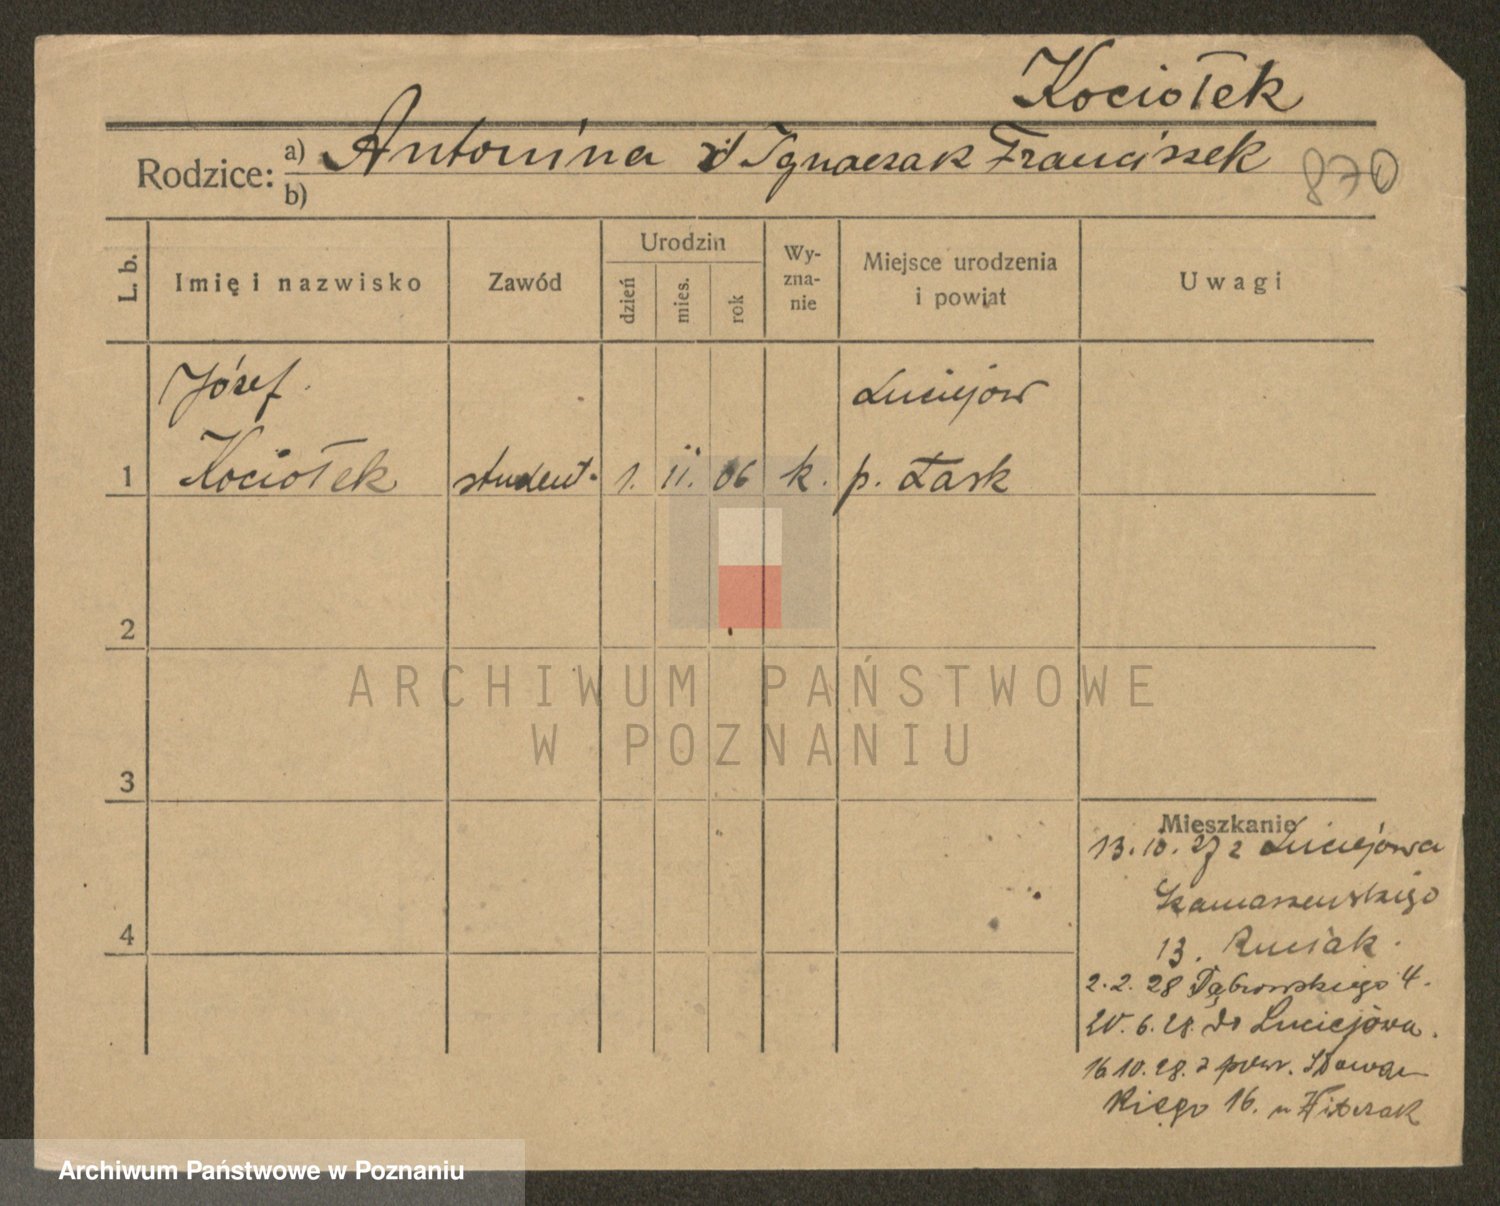 Kociołek
Rodzice: a) Antonina Ignaczak Franciszek 870
b)
L. b. Imię i nazwisko Zawód Urodzin dzień mies. rok Wyznanie Miejsce urodzenia i powiat Uwagi
Józef Luciejow
1 Kociołek student 1. 11. 06 k. p. Łask
2
ARCHIWUM PAŃSTWOWE
W POZNANIU
3
Mieszkanie
13.10.27 z Luciejowa
13. Rusiak.
4
2.2.28 Dąbrowskiego 4.
20.6.28. do Luciejowa.
16 10.28. z powr.
kiego 16.
Archiwum Państwowe w Poznaniu